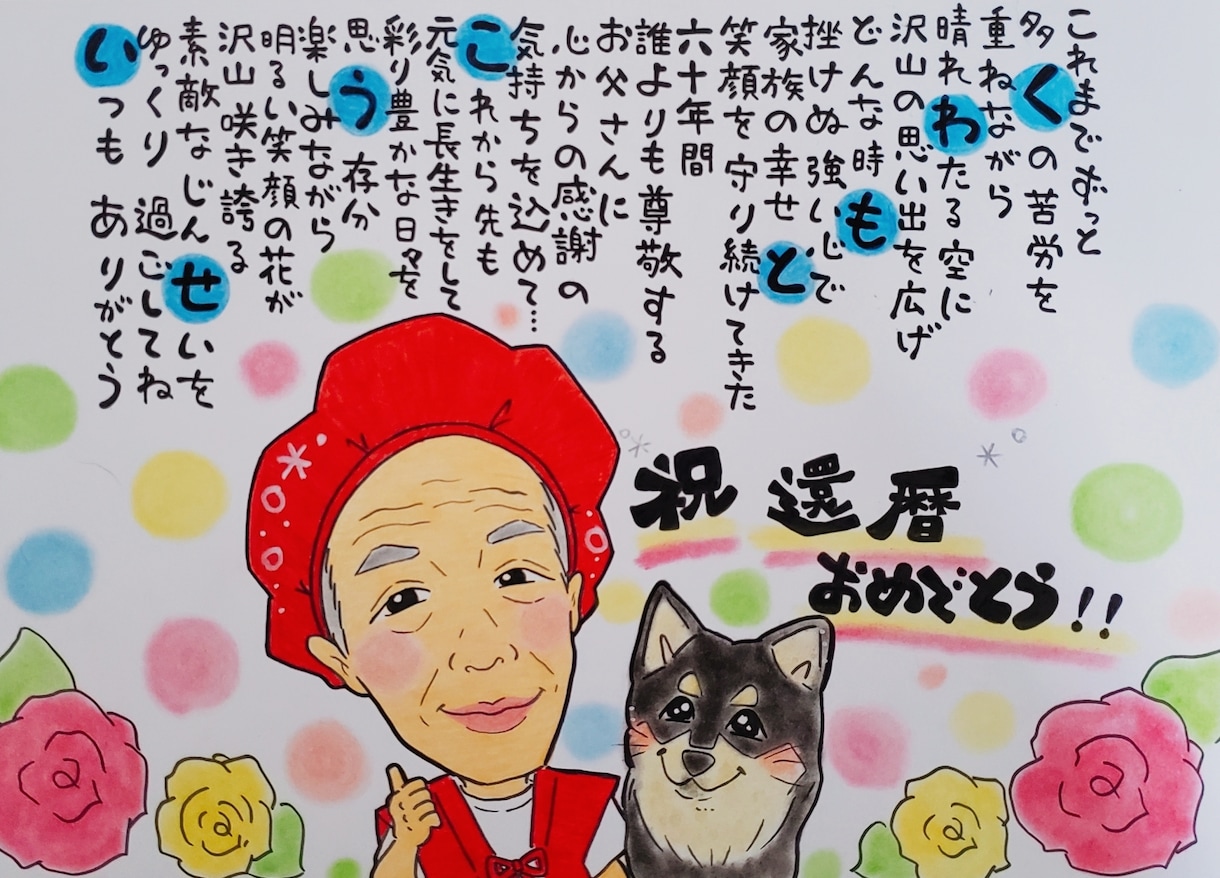 これまでずっと
多くの苦労を
重ねながら
晴れわたる空に
沢山の思い出を広げ
どんな時も
挫けぬ強い心で
家族の幸せと
笑顔を守り続けてきた
六十年間
誰よりも尊敬する
お父さんに
心からの感謝の
気持ちを込めて…
これから先も
元気に長生きをして
彩り豊かな日々を
思う存分
楽しみながら
明るい笑顔の花が
沢山咲き誇る
素敵なじんせいを
ゆっくり 過ごしてね
いつも ありがとう
祝 還暦
おめでとう!!